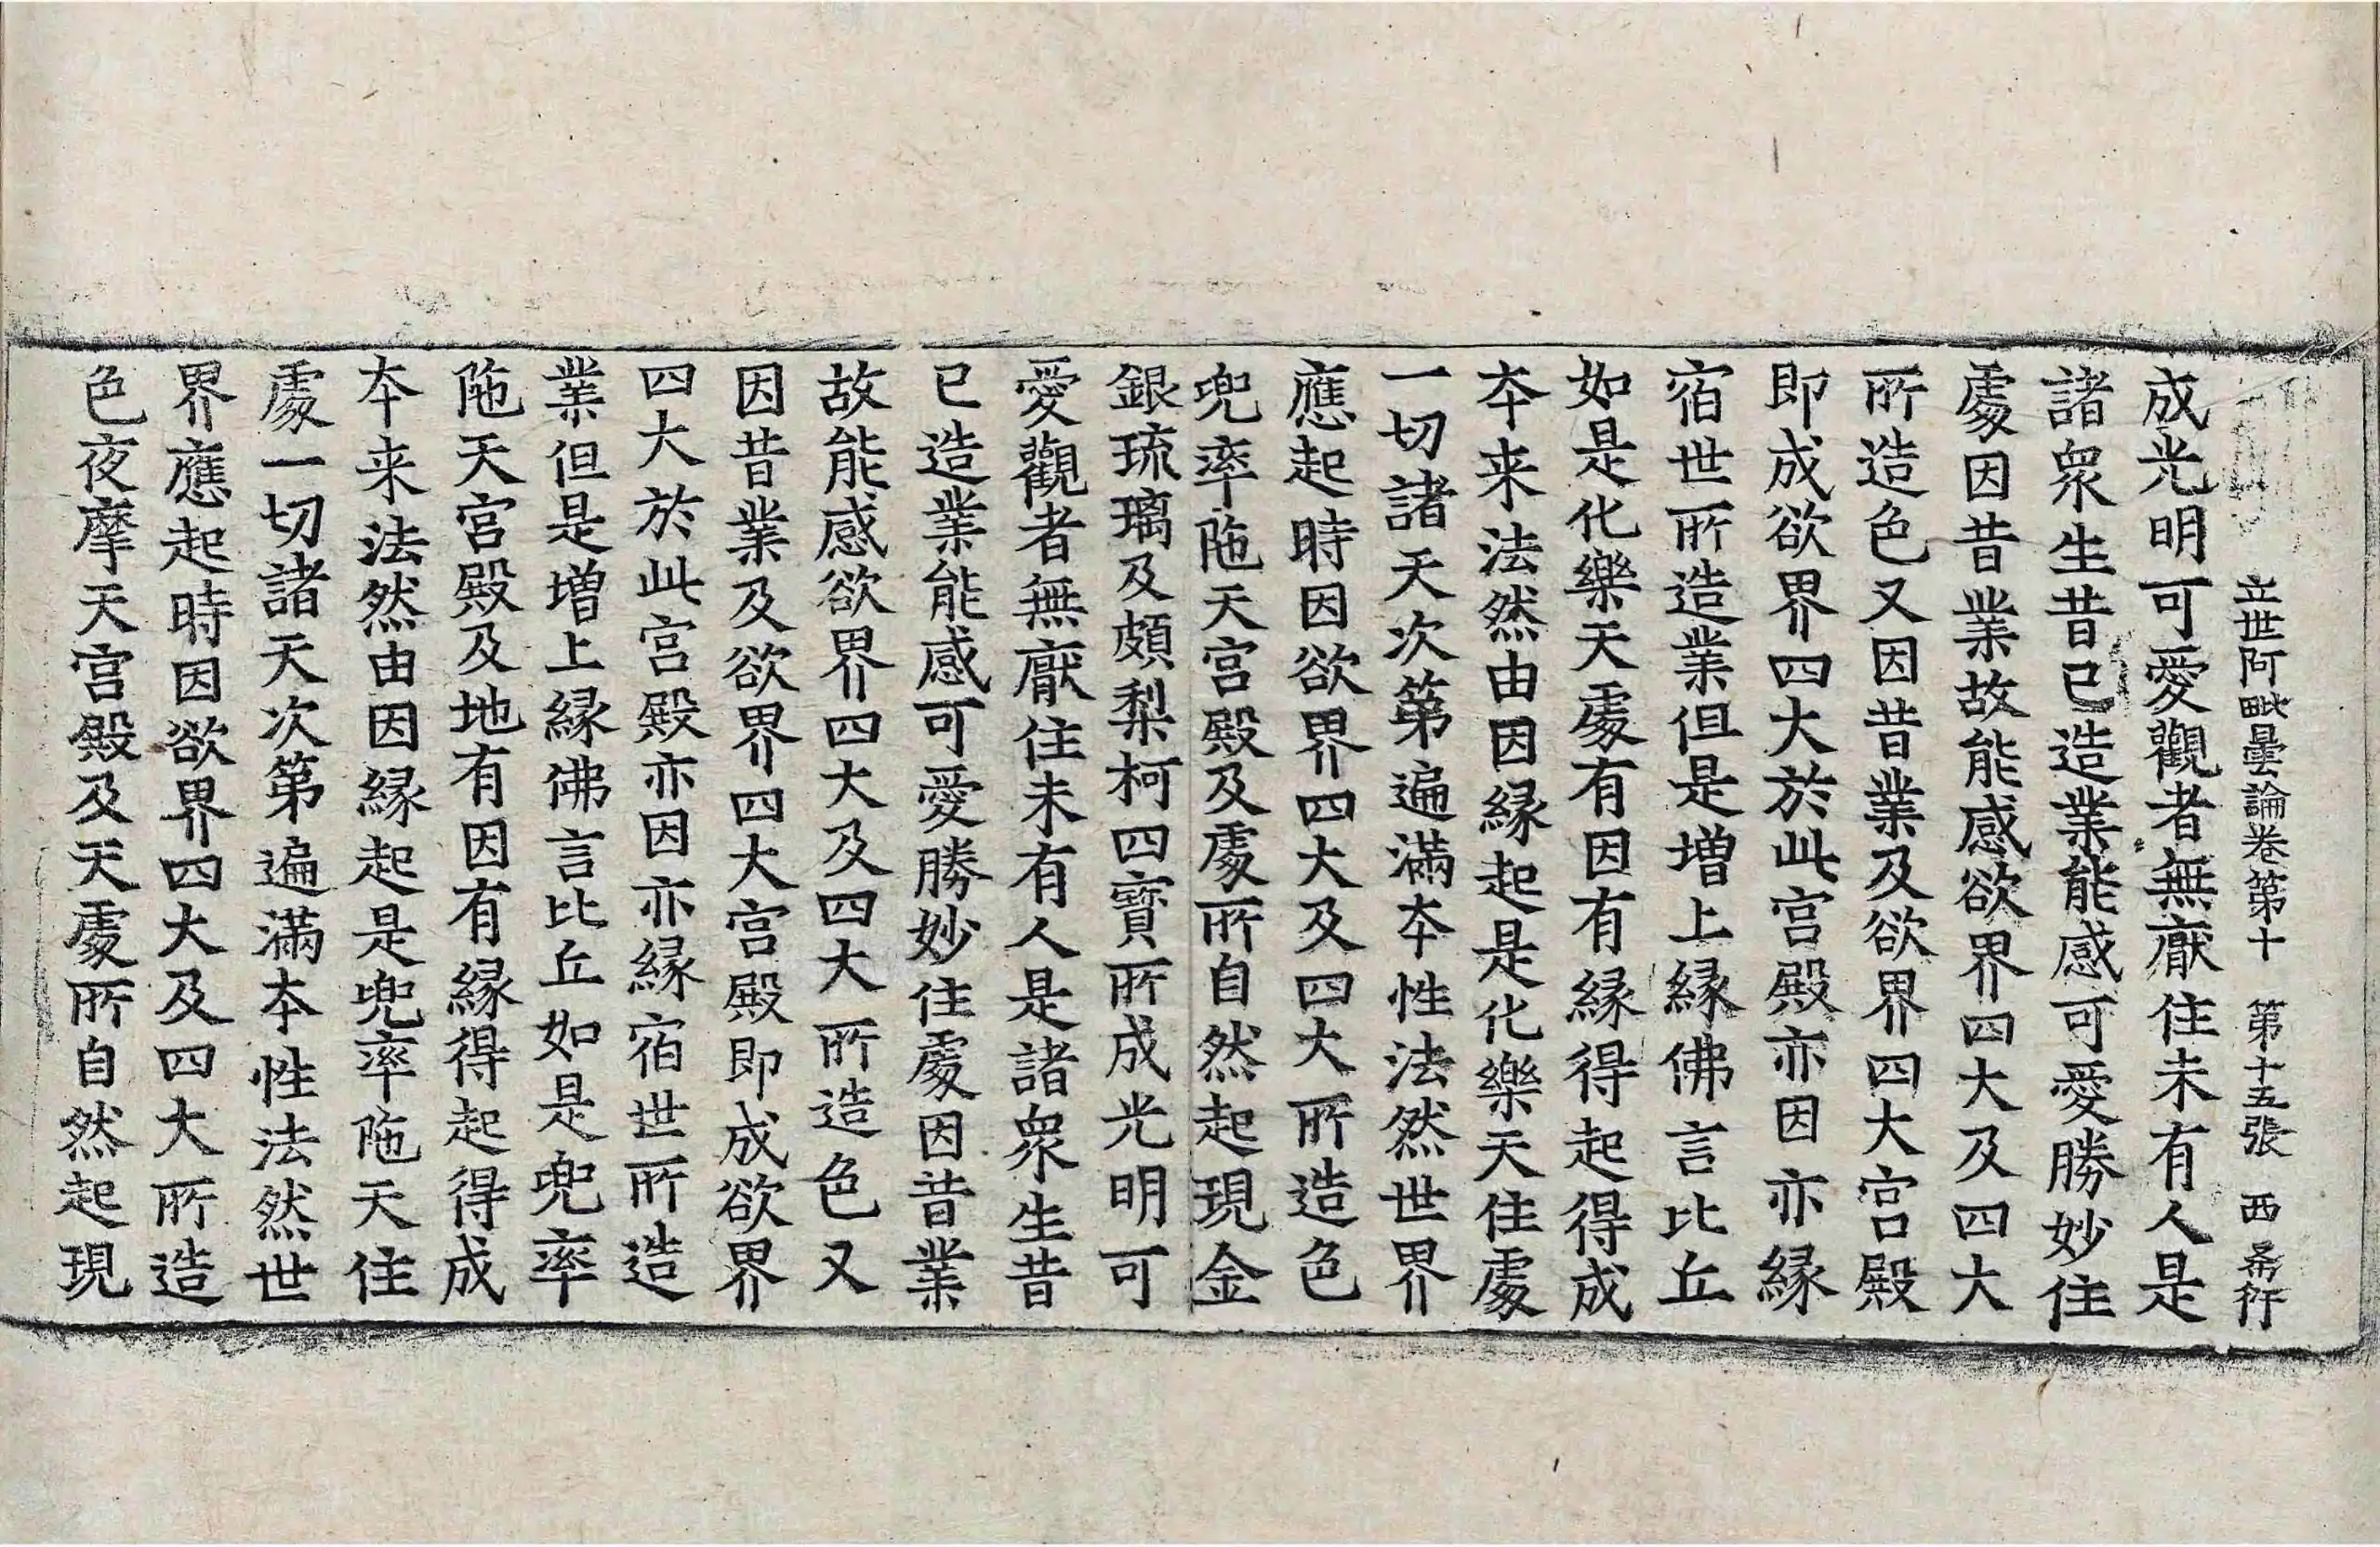 立世阿毗曇論卷第十 第十五張 西 希行
成光明可愛觀者無厭住未有人是
諸衆生昔已造業能感可愛勝妙住
處因昔業故能感欲界四大及四大
所造色又因昔業及欲界四大宫殿
即成欲界四大於此宫殿亦因亦縁
宿世所造業但是增上縁佛言比丘
如是化樂天處有因有縁得起得成
本来法然由因縁起是化樂天住處
一切諸天次第遍滿本性法然世界
應起時因欲界四大及四大所造色
兜率陁天宫殿及處所自然起現金
銀琉璃及頗梨柯四寳所成光明可
愛觀者無厭住未有人是諸衆生昔
已造業能感可愛勝妙住處因昔業
故能感欲界四大及四大所造色又
因昔業及欲界四大宫殿即成欲界
四大於此宫殿亦因亦縁宿世所造
業但是增上縁佛言比丘如是兜率
陁天宫殿及地有因有縁得起得成
本来法然由因縁起是兜率陁天住
處一切諸天次第遍滿本性法然世
界應起時因欲界四大及四大所造
色夜摩天宫殿及天處所自然起現